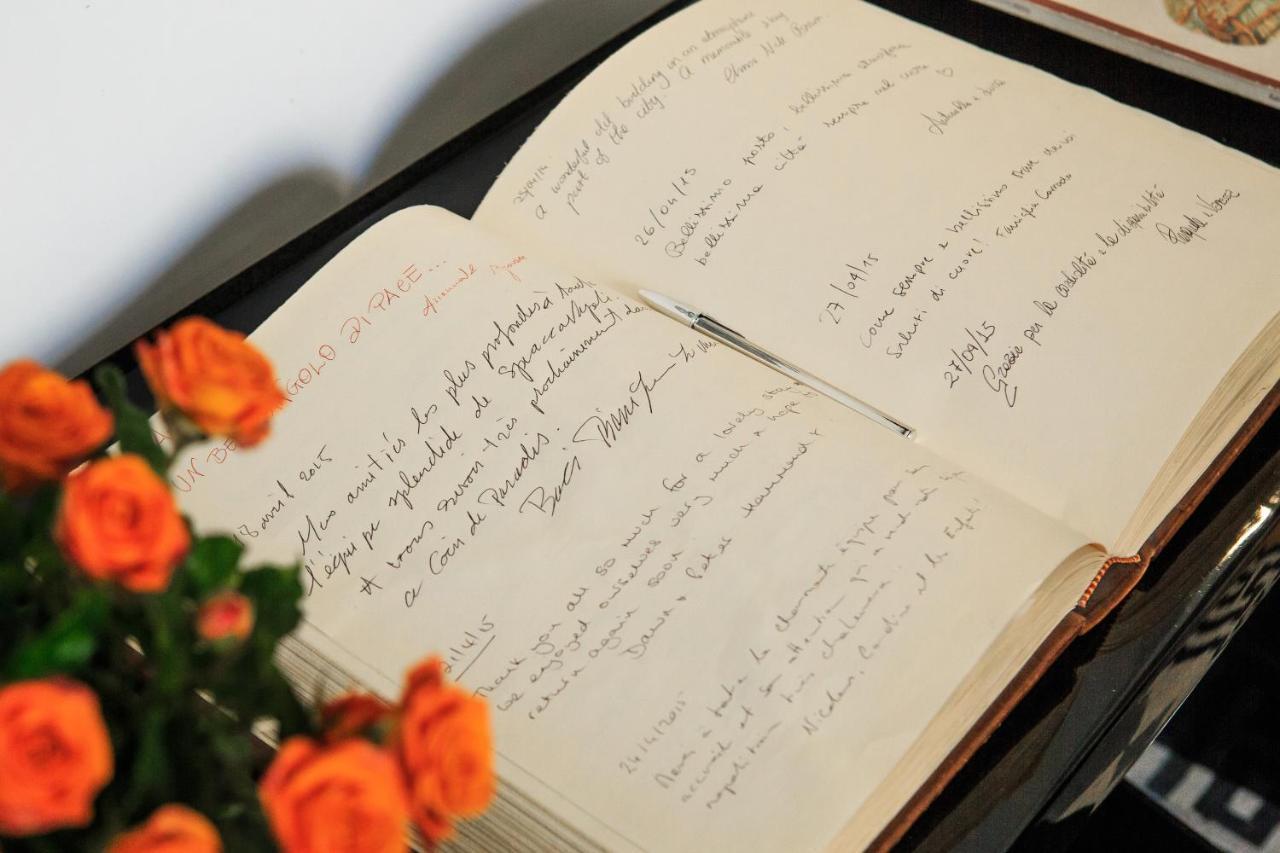 UN BE ANGOLO DI PACE...
18 avril 2015
Mes amitiés les plus profondes à tout
l'équipe splendide de Spaccanapoli.
A vous revoir très prochainement da
ce Coin de Paradis.
Baci
21/4/15
Thank you all so much for a lovely stay
we enjoyed ourselves very much & hope to
return again soon.
Dawn & Peter
24/4/2015
Merci à toute la charmante équipe pour
accueil et son attention qui a rendu
napolitain très chaleureux!
Nicolas, Caroline et les Enfants!
25/04/14.
A wonderful old building in an atmospheric
part of the city. A memorable stay
26/04/15
Bellissimo posto, bellissima atmosfera
bellissima città sempre nel cuore ♡
27/04/15
Come sempre è bellissimo
Saluti di cuore! Famiglia
27/04/15
Grazie per la cordialità e la disponibilità